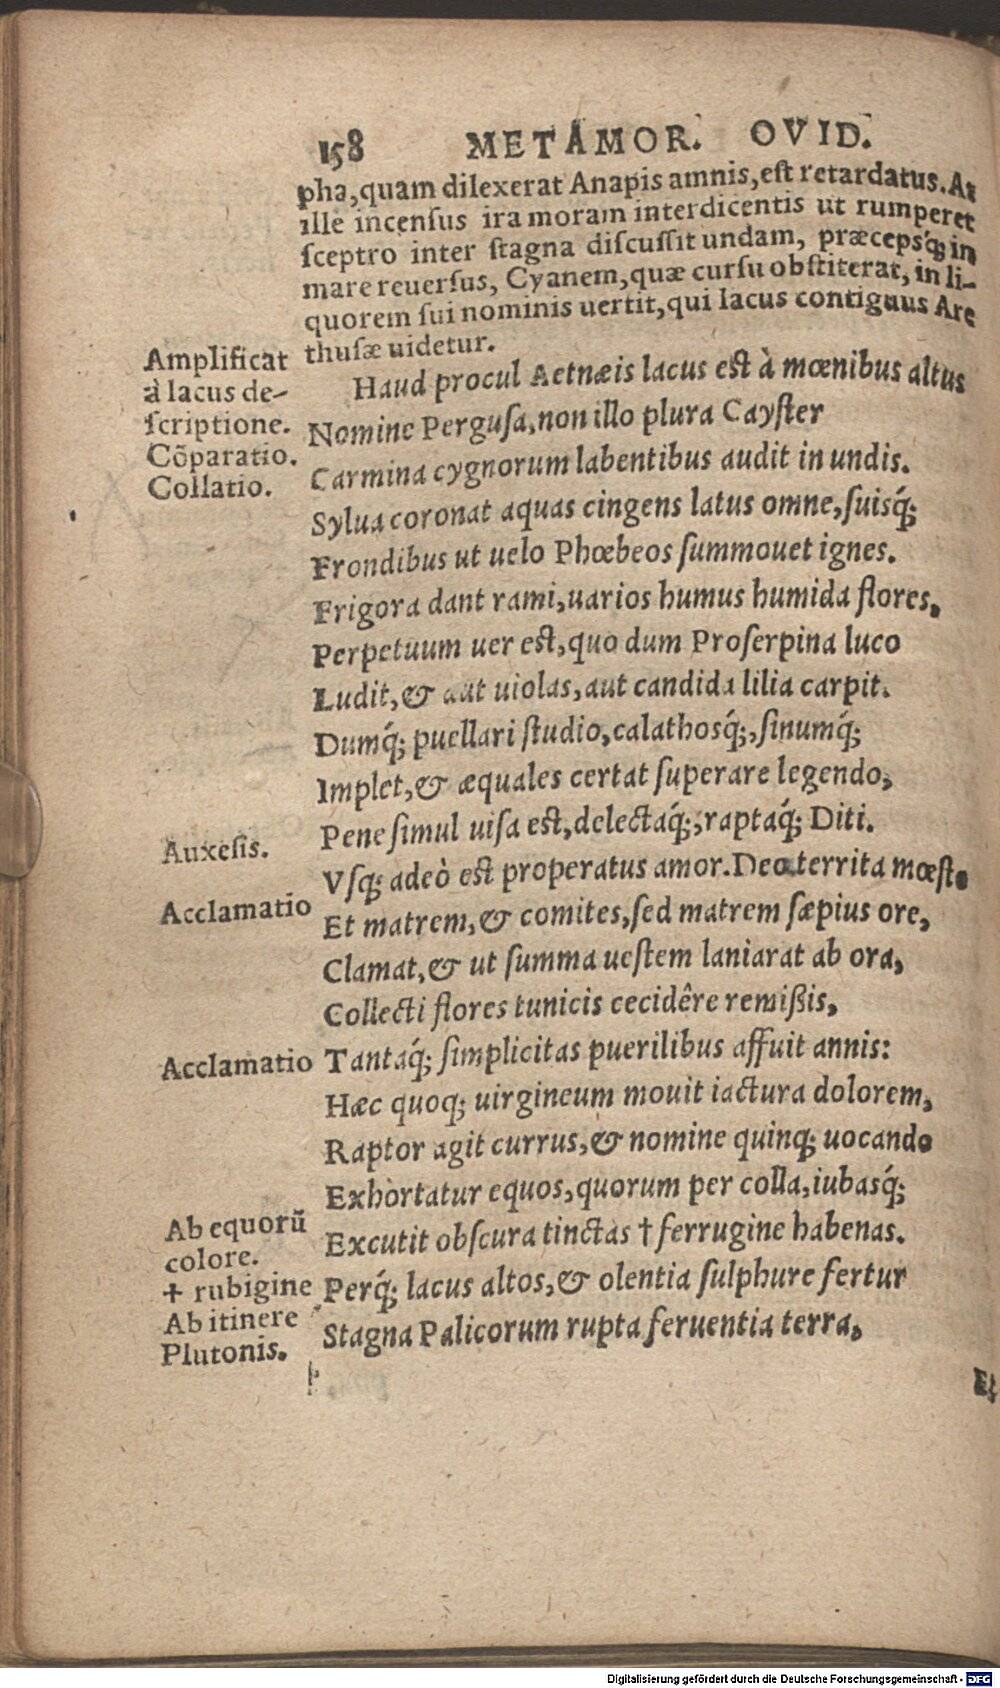 158 METAMOR. OVID.
pha, quam dilexerat Anapis amnis, est retardatus. At
ille incensus ira moram interdicentis ut rumperet
sceptro inter stagna discussit undam, præcepsq́; in
mare reuersus, Cyanem, quæ cursu obstiterat, in li-
quorem sui nominis uertit, qui lacus contiguus Are
thusæ uidetur.
Amplificat
à lacus de-
scriptione.
Cõparatio.
Collatio.
Haud procul Aetnæis lacus est à mœnibus altus
Nomine Pergusa, non illo plura Cayster
Carmina cygnorum labentibus audit in undis.
Sylua coronat aquas cingens latus omne, suisq́;
Frondibus ut uelo Phœbeos summouet ignes.
Frigora dant rami, uarios humus humida flores,
Perpetuum uer est, quo dum Proserpina luco
Ludit, & aut uiolas, aut candida lilia carpit.
Dumq́; puellari studio, calathosq́;, sinumq́;
Implet, & æquales certat superare legendo,
Pene simul uisa est, delectaq́;, raptaq́; Diti.
Auxesis.
Vsq; adeò est properatus amor. Dea territa mœsto
Acclamatio
Et matrem, & comites, sed matrem sæpius ore,
Clamat, & ut summa uestem laniarat ab ora,
Collecti flores tunicis cecidêre remißis,
Acclamatio
Tantaq́; simplicitas puerilibus affuit annis:
Hæc quoq; uirgineum mouit iactura dolorem,
Raptor agit currus, & nomine quinq; uocando
Exhortatur equos, quorum per colla, iubasq́;
Ab equorũ
colore.
Excutit obscura tinctas † ferrugine habenas.
+ rubigine
Perq́; lacus altos, & olentia sulphure fertur
Ab itinere
Plutonis.
Stagna Palicorum rupta feruentia terra,
Et
Digitalisierung gefördert durch die Deutsche Forschungsgemeinschaft - DFG